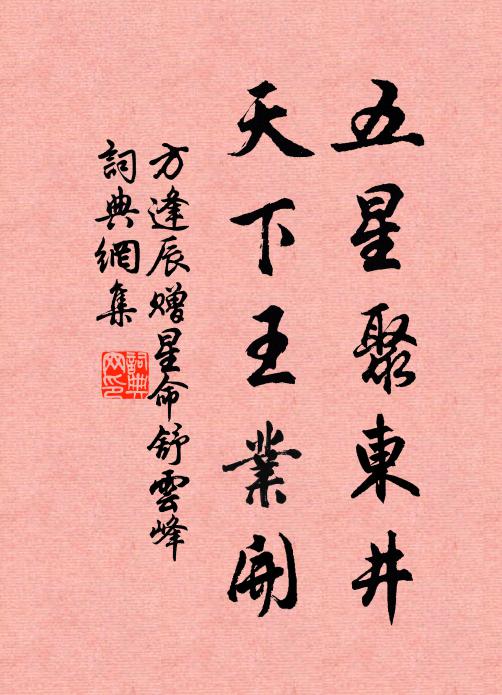 五星聚東井
天下王業開
方逢辰贈星命舒雲峰
詞典網集
詞典網印